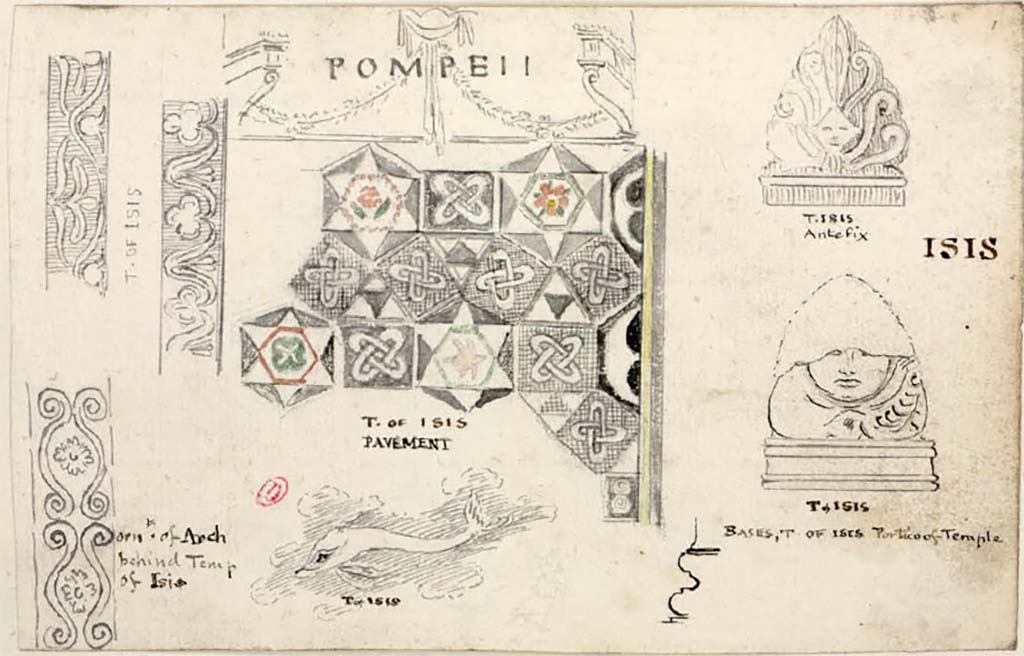 POMPEII
T. OF ISIS
T. ISIS
Antefix
ISIS
T. OF ISIS
PAVEMENT
T of ISIS
BASES, T. OF ISIS Portico of Temple
ornt. of Arch
behind Temp
of Isis
T of ISIS